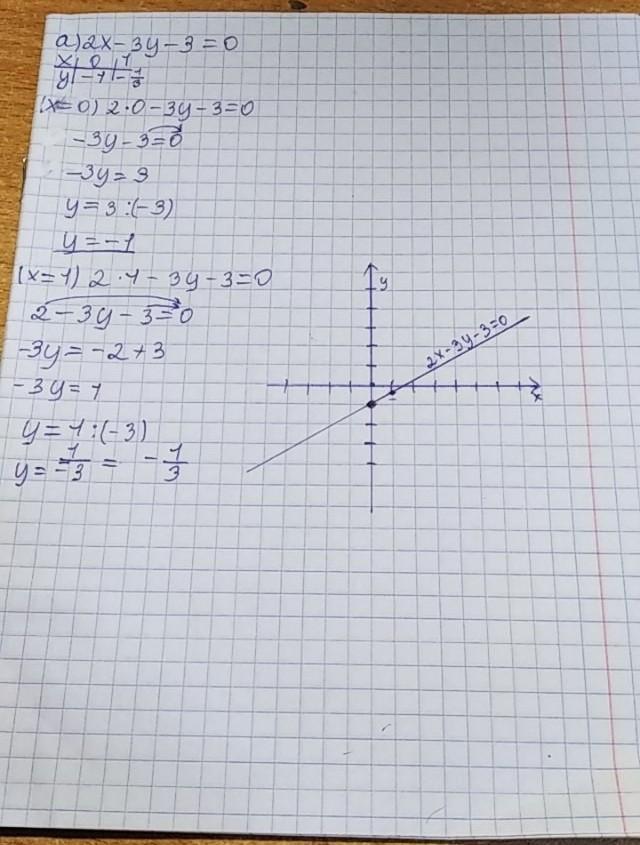 а) 2x - 3y - 3 = 0
x | 0 | 1
y | -1 | -1/3
(x=0) 2·0 - 3y - 3 = 0
-3y - 3 = 0
-3y = 3
y = 3 : (-3)
y = -1
(x=1) 2·1 - 3y - 3 = 0
2 - 3y - 3 = 0
-3y = -2 + 3
-3y = 1
y = 1 : (-3)
y = 1/-3 = -1/3
y
2x-3y-3=0
x